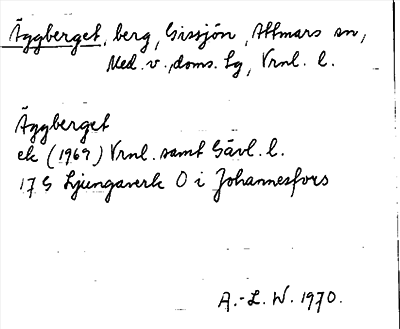 Äggberget, berg, Gissjön, Attmars sn,
Med. v. doms. lg, Vrnl. l.
Äggberget
ek (1969) Vrnl. samt Gävl. l.
17 G Ljungaverk O i Johannesfors
A.-L. W. 1970.